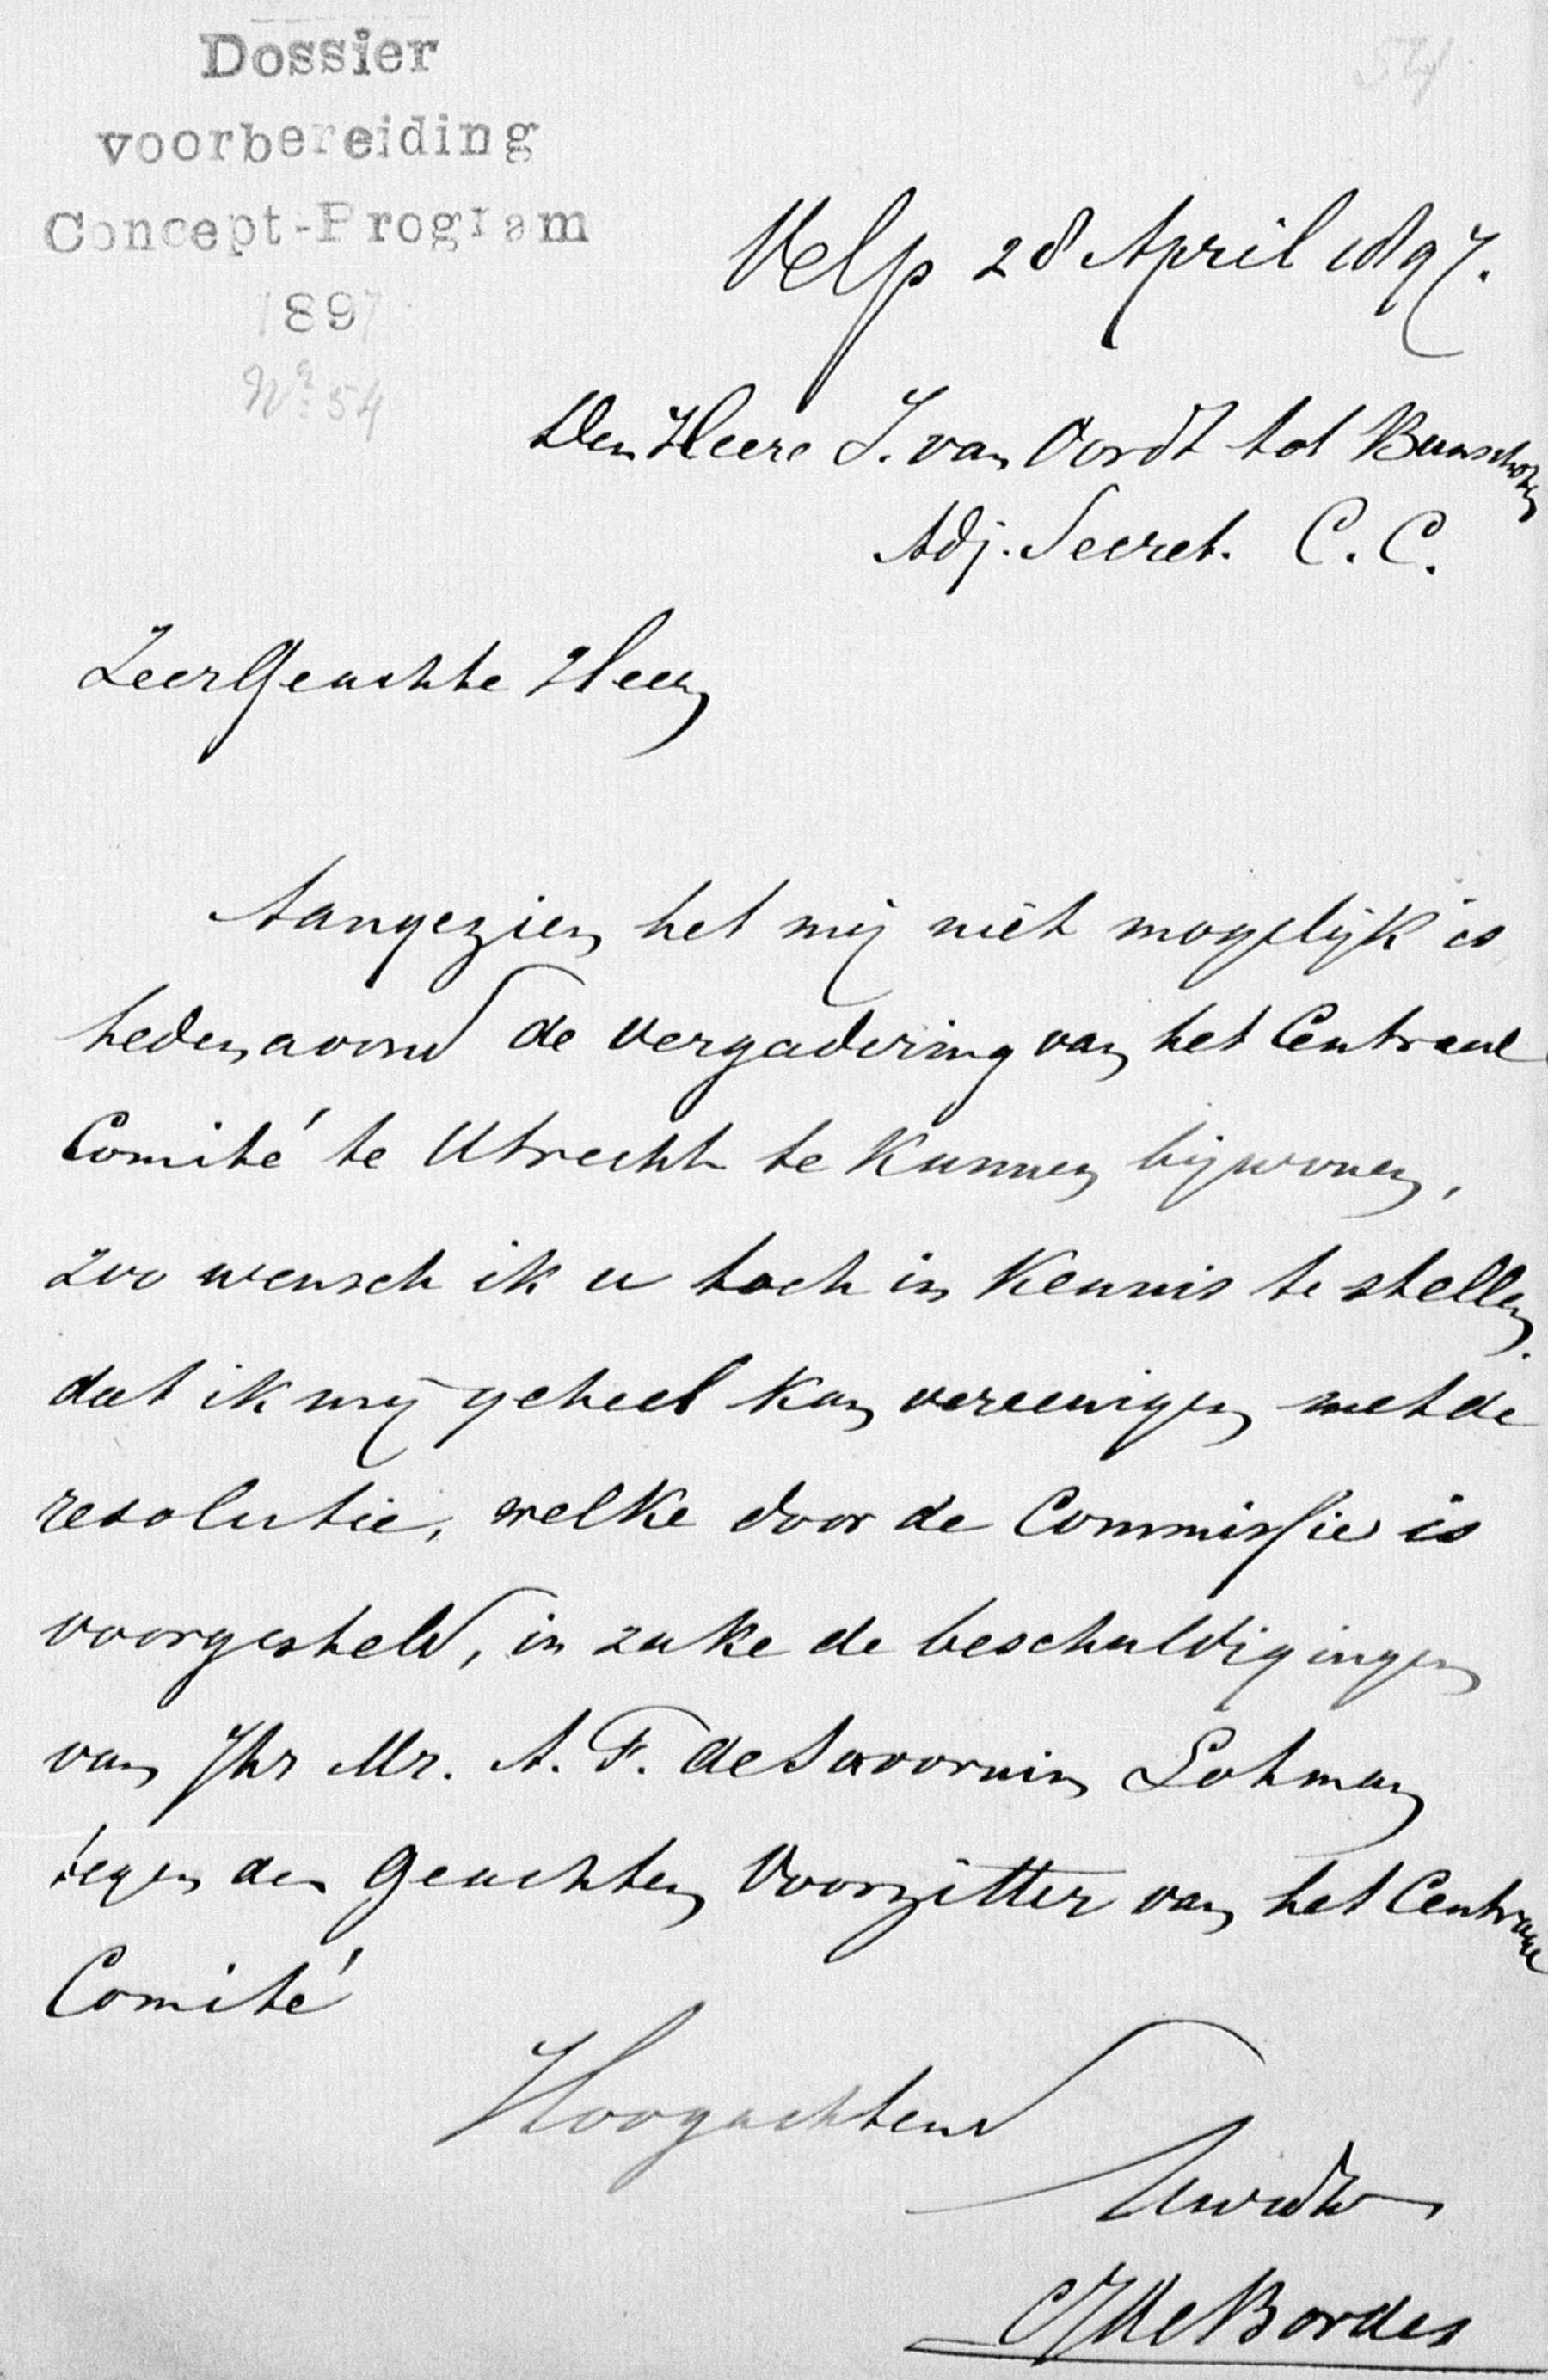 Dossier
voorbereiding
Concept-Program
1897
No 54
54
Velp 28 April 1897.
Den Heere J. van Oordt tot Bunschoten
Adj. Secret. C. C.
ZeerGeachte Heer
Aangezien het mij niet mogelijk is
hedenavond de vergadering van het Centraal
Comité te Utrecht te kunnen bijwonen,
zoo wensch ik u toch in kennis te stellen
dat ik mij geheel kan vereenigen met de
resolutie, welke door de Commissie is
voorgesteld, in zake de beschuldigingen
van Jhr Mr. A. F. de Savornin Lohman
tegen den geachten Voorzitter van het Centraal
Comité
Hoogachtend
Uwdw
CJ de Bordes